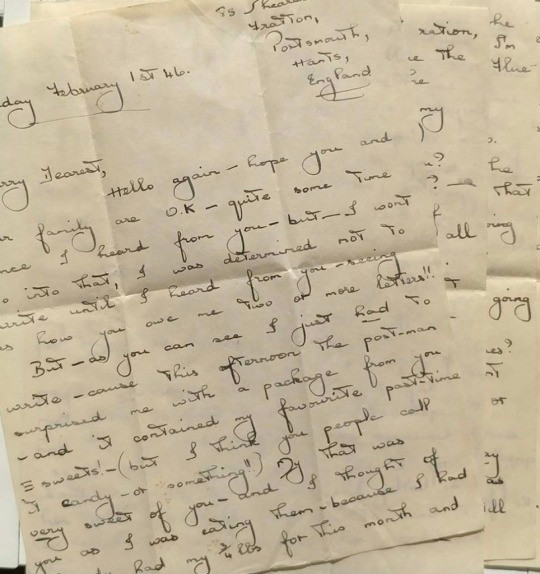 Fratton,
Portsmouth,
Hants,
England
day February 1st 46.
rry Dearest,
Hello again - hope you and
r family are O.K - quite some time
nce I heard from you - but - I wont
o into that, I was determined not to
write until I heard from you - seeing
as how you owe me two or more letters!!
But - as you can see I just had to
write - cause this afternoon the post-man
surprised me with a package from you
- and it contained my favourite past-time
= sweets! - (but I think you people call
it candy - or something!!) that was
very sweet of you - and I thought of
you as I was eating them - because I had
had my ¾ lbs for this month and
ration, he
the I'm
re Flue
my
he
that
all
ring
going
or
as